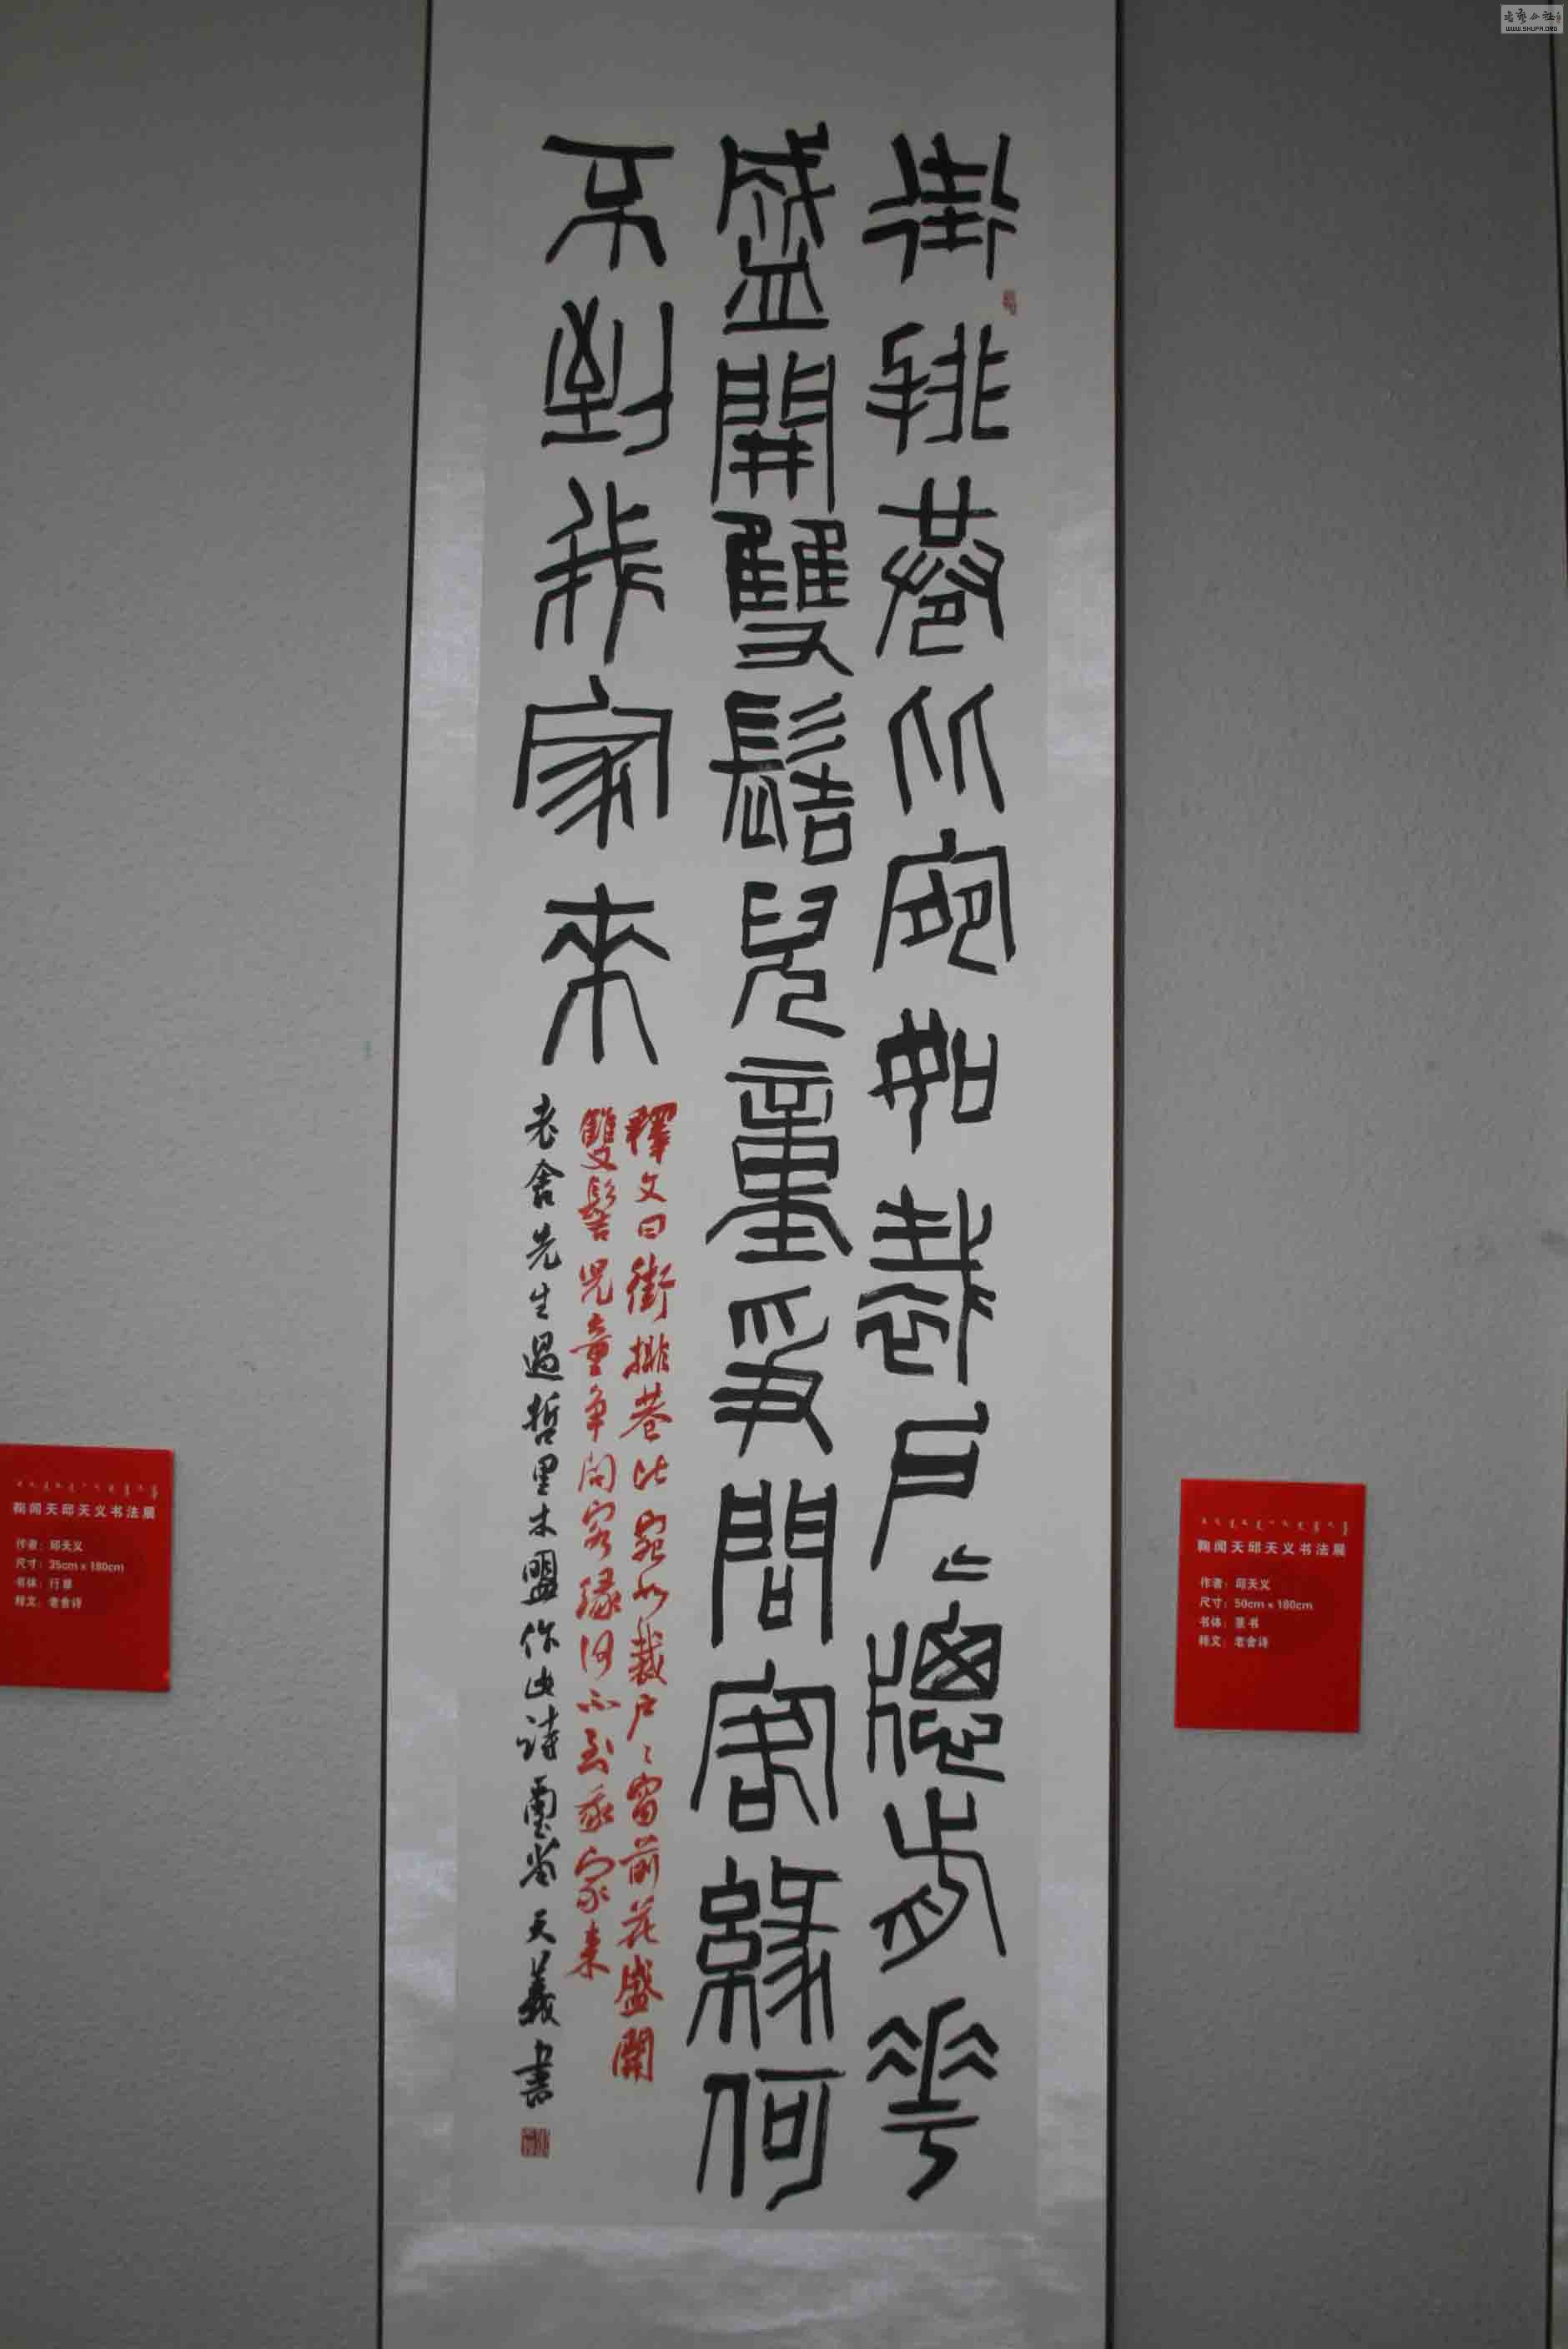 街排巷比宛如裁户〻窗歬華
盛開雙髻兒童爭問客緣何
不到我家來
釋文曰街排巷比宛如裁户〻窗前花盛開
雙髻兒童争问客緣何不到我家来
老舍先生過哲里木盟作此诗 天義書
鞠闻天邱天义书法展
作者：邱天义
尺寸：50cm x 180cm
书体：篆书
释文：老舍诗
鞠闻天邱天义书法展
作者：邱天义
尺寸：35cm x 180cm
书体：行草
释文：老舍诗
WWW.SHUFA.ORG